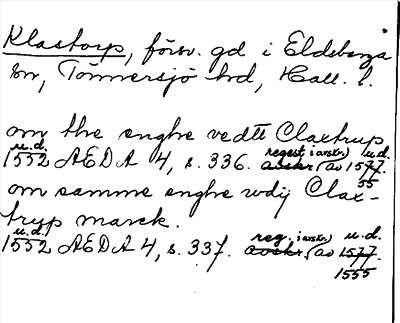 Klastorp, försv. gd i Eldsberga
sn, Tönnersjö hrd, Hall. l.
om thr enghe vedtt Claxtrup
u.d. regest i avskr.) u.d.
1552 AEDA 4, s. 336. avskr. (av 1577.
55
om samme enghe wdij Clax-
tryp marck.
u.d. reg. i avskr.)
1552 AEDA 4, s. 337. avskr. (av 1577.
1555